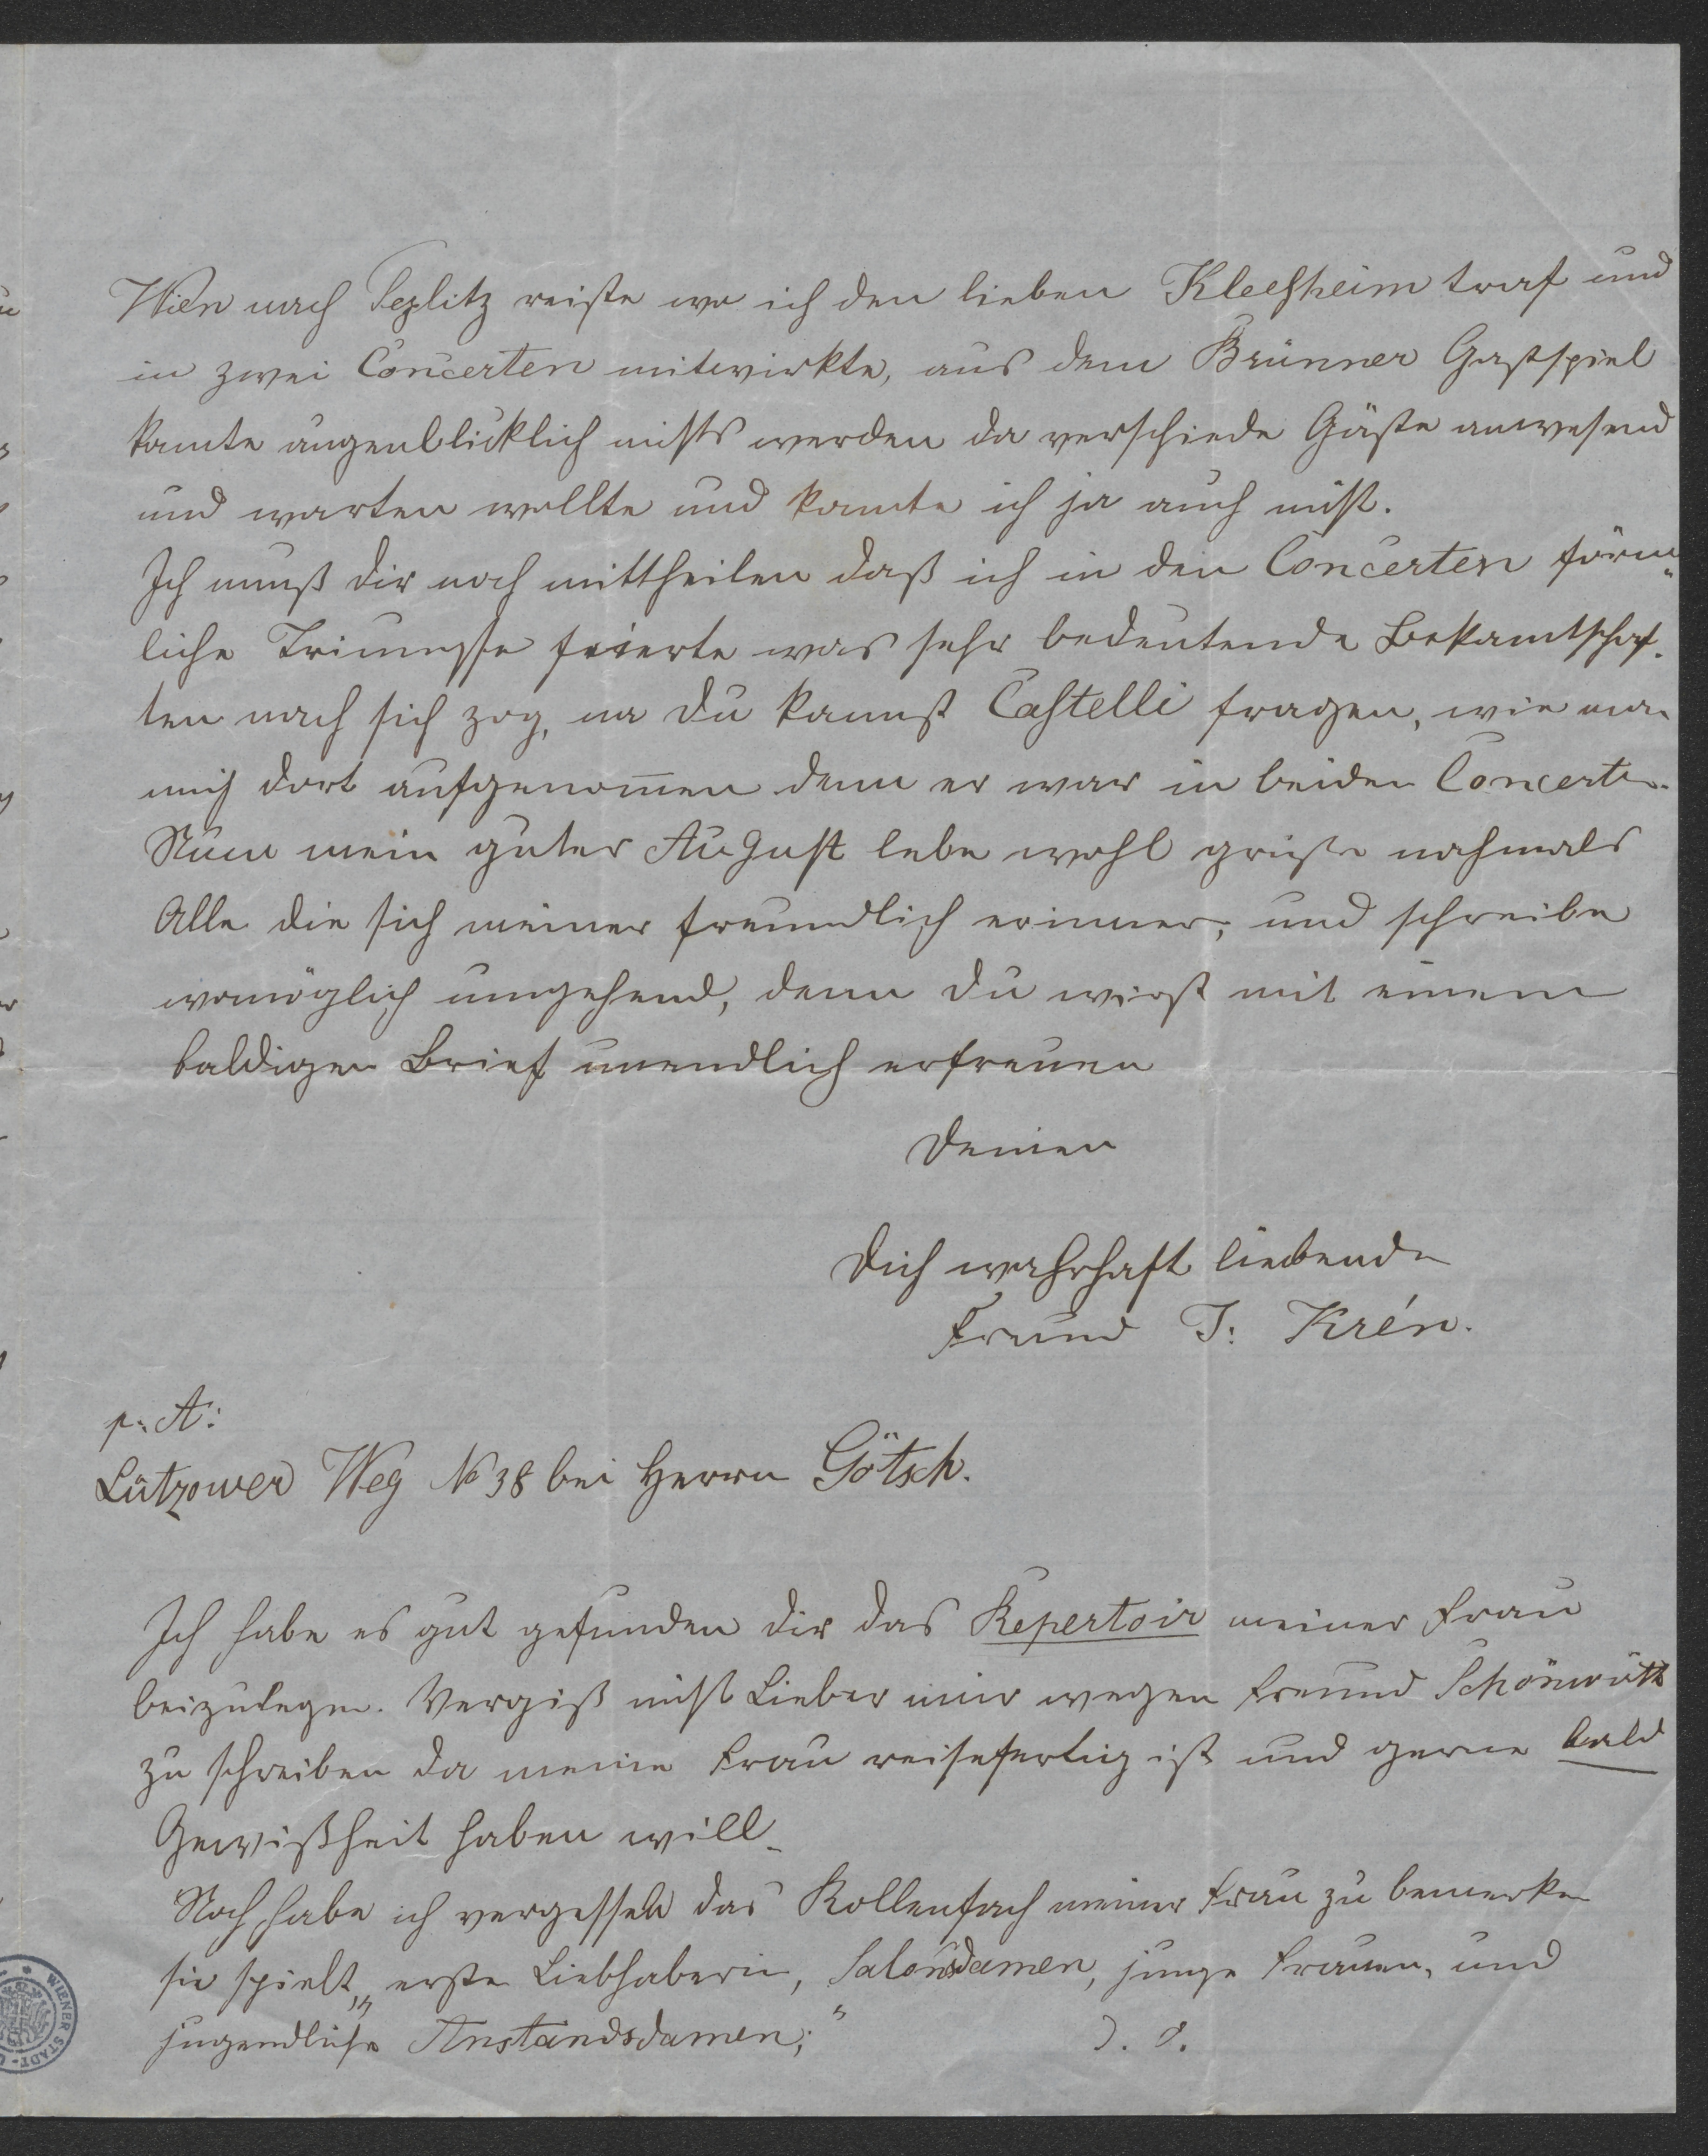 Wien nach Teplitz reiste wo ich den lieben Klesheim traf und
in zwei Concerten mitwirkte, aus dem Brünner Gastspiel
konnte augenblicklich nichts werden da verschiede Gäste anwesend
und warten wollte und konnte ich ja auch nicht.
Ich muß dir noch mittheilen daß ich in den Concerten förm„
liche Triumpfe feierte was sehr bedeutende Bekanntschaf„
ten nach sich zog, na Du kannst Castelli fragen, wie man
mich dort aufgenom̄en denn er war in beiden Concerten.
Nun mein guter August lebe wohl grüße nochmals
Alle die sich meiner freundlich erinnern, und schreibe
womöglich umgehend, denn Du wirst mit einem
baldigen Brief unendlich erfreuen
Deinen
Dich wahrhaft liebenden
Freund J: Krén.
p. A:
Lützower Weg No 38 bei Herrn Götsch.
Ich habe es gut gefunden dir das Repertoir meiner Frau
beizulegen. Vergiß nicht Lieber mir wegen Freund
zu schreiben da meine Frau reisefertig ist und gerne bald
Gewißheit haben will.
Noch habe ich vergessen das Rollenfach meiner Frau zu bemerken
sie spielt „erste Liebhaberin, Salonsdamen, junge Frauen, und
jugendliche Anstandsdamen;“ D. O.
WIENER STADT-